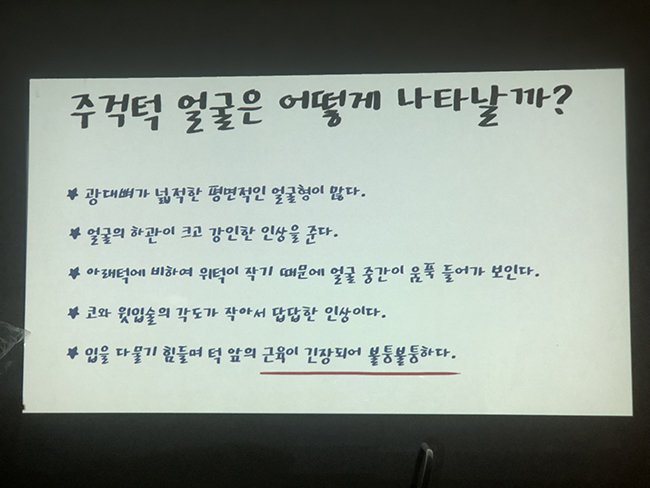 주걱턱 얼굴은 어떻게 나타날까?
★ 광대뼈가 넓적한 평면적인 얼굴형이 많다.
★ 얼굴의 하관이 크고 강인한 인상을 준다.
★ 아래턱에 비하여 위턱이 작기 때문에 얼굴 중간이 움푹 들어가 보인다.
★ 코와 윗입술의 각도가 작아서 답답한 인상이다.
★ 입을 다물기 힘들며 턱 앞의 근육이 긴장되어 불퉁불퉁하다.